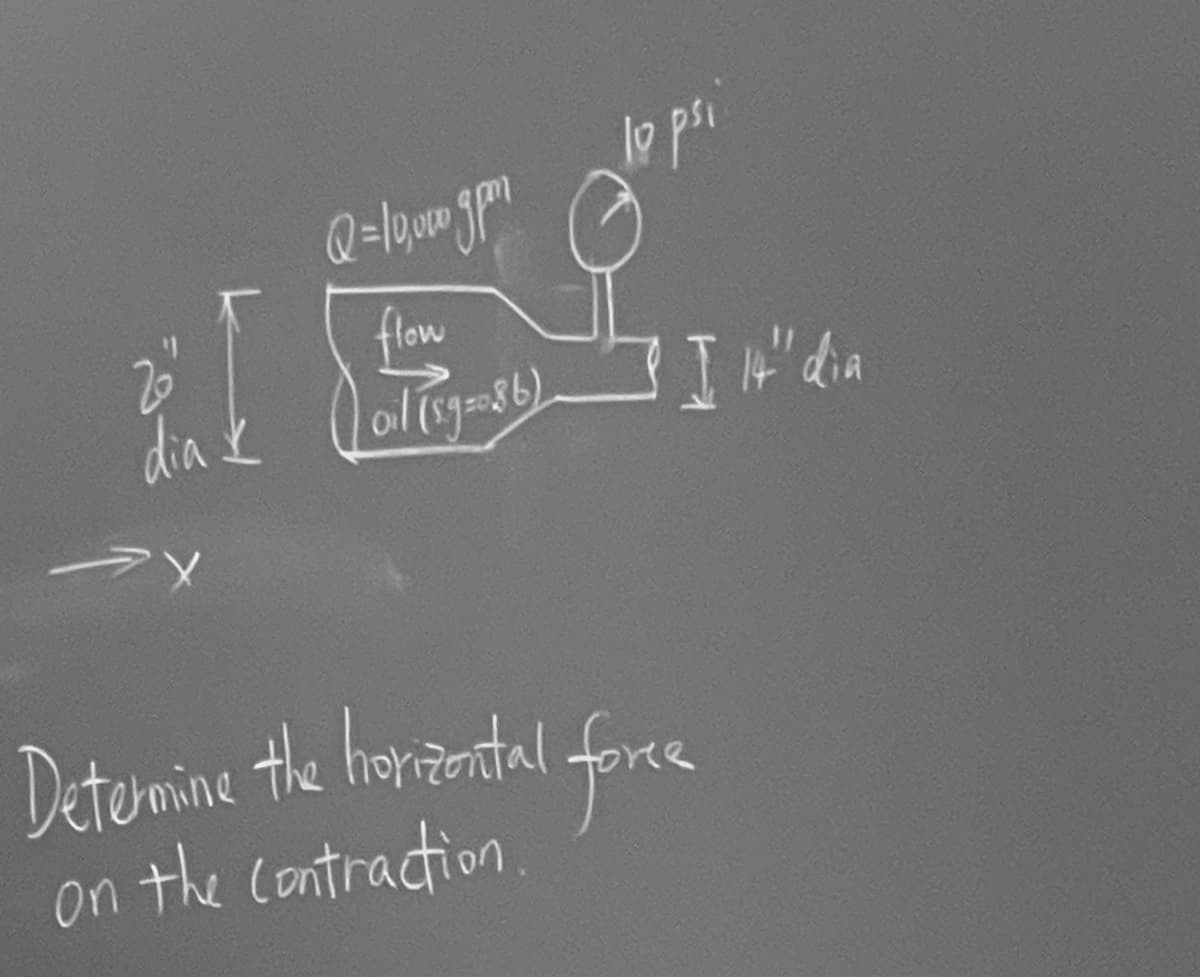 10 psi
Q=10,000 gpm
flow
20"
dia
oil (sg=0.86)
14" dia
x
Determine the horizontal force
on the contraction.